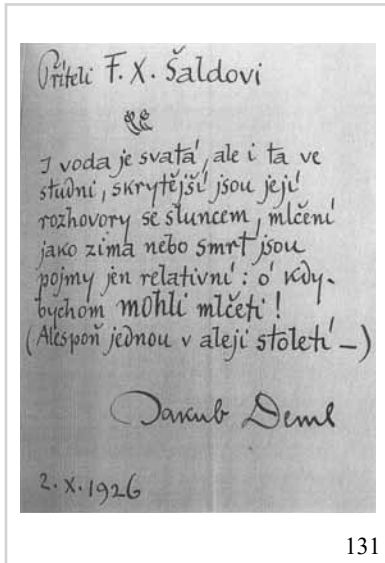 Příteli F. X. Šaldovi
I voda je svatá, ale i ta ve
studni, skrytější jsou její
rozhovory se sluncem, mlčení
jako zima nebo smrt jsou
pojmy jen relativní: ó kdy-
bychom mohli mlčeti!
(Alespoň jednou v aleji století –)
Jakub Deml
2. X. 1926
131